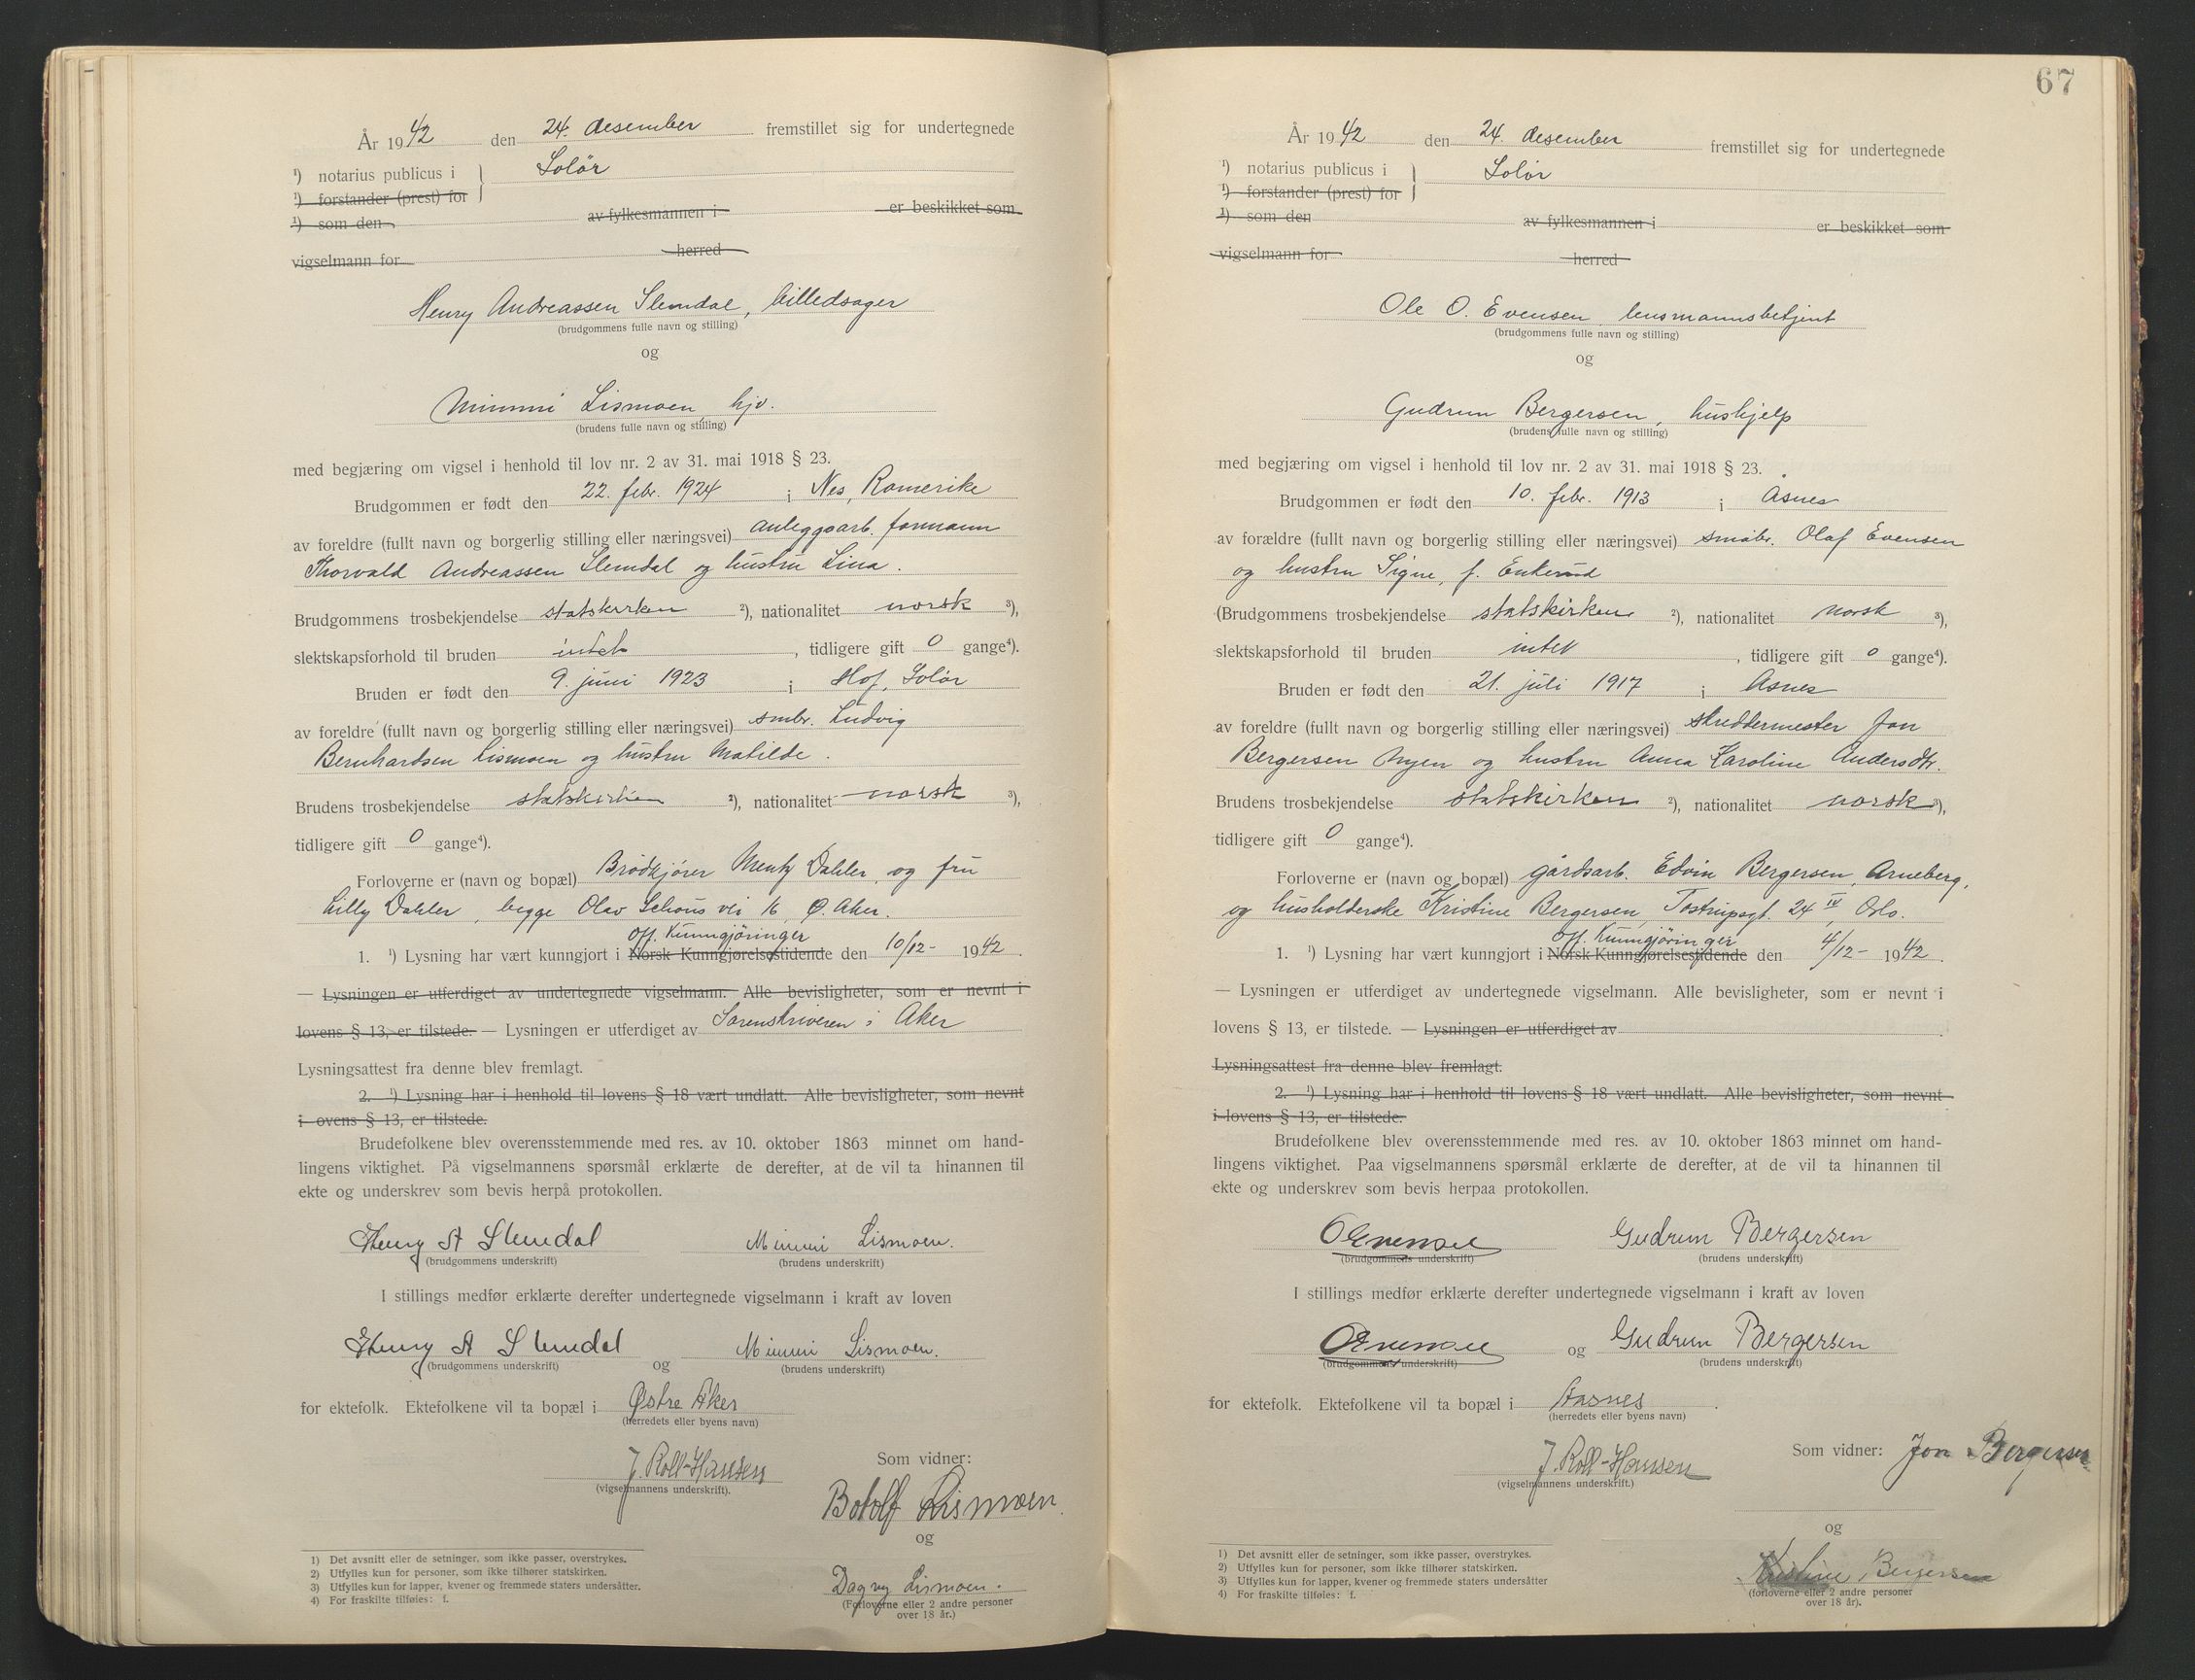 År 1942 den 24. desember fremstillet sig for undertegnede
¹) notarius publicus i } Solør
¹) forstander (prest) for
¹) som den av fylkesmannen i er beskikket som
vigselmann for herred
Henry Andreassen Slemdal, billedsager
(brudgommens fulle navn og stilling)
og
Mimmi Lismoen, hjv.
(brudens fulle navn og stilling)
med begjæring om vigsel i henhold til lov nr. 2 av 31. mai 1918 § 23.
Brudgommen er født den 22. febr. 1924 i Nes, Romerike
av foreldre (fullt navn og borgerlig stilling eller næringsvei) anleggsarb. formann
Thorvald Andreassen Slemdal og hustru Lina.
Brudgommens trosbekjendelse statskirken ²), nationalitet norsk ³),
slektskapsforhold til bruden intet, tidligere gift 0 gange⁴).
Bruden er født den 9. juni 1923 i Hof, Solør
av foreldre (fullt navn og borgerlig stilling eller næringsvei) smbr. Ludvig
Bernhardsen Lismoen og hustru Matilde.
Brudens trosbekjendelse statskirken ²), nationalitet norsk ³),
tidligere gift 0 gange⁴).
Forloverne er (navn og bopæl) Brødkjører Mentz Dahler, og fru
Lilly Dahler, begge Olav Schous vei 16, Ø. Aker.
off. Kunngjøringer
1. ¹) Lysning har vært kunngjort i Norsk Kunngjørelsestidende den 10/12- 1942.
— Lysningen er utferdiget av undertegnede vigselmann. Alle bevisligheter, som er nevnt i
lovens § 13, er tilstede. — Lysningen er utferdiget av Sorenskriveren i Aker
Lysningsattest fra denne blev fremlagt.
2. ¹) Lysning har i henhold til lovens § 18 vært undlatt. Alle bevisligheter, som nevnt
i ovens § 13, er tilstede.
Brudefolkene blev overensstemmende med res. av 10. oktober 1863 minnet om hand-
lingens viktighet. På vigselmannens spørsmål erklærte de derefter, at de vil ta hinannen til
ekte og underskrev som bevis herpå protokollen.
Henry A Slemdal Mimmi Lismoen.
(brudgommens underskrift) (brudens underskrift)
I stillings medfør erklærte derefter undertegnede vigselmann i kraft av loven
Henry A Slemdal og Mimmi Lismoen.
(brudgommens underskrift) (brudens underskrift)
for ektefolk. Ektefolkene vil ta bopæl i Østre Aker
(herredets eller byens navn)
J. Roll-Hansen Som vidner:
(vigselmannens underskrift).
Botolf Lismoen.
og
Dagny Lismoen.
(Forloverne eller 2 andre personer
over 18 år.)
1) Det avsnitt eller de setninger, som ikke passer, overstrykes.
2) Utfylles kun for personer, som ikke tilhører statskirken.
3) Utfylles kun for lapper, kvener og fremmede staters undersåtter.
4) For fraskilte tilføies: f.
67
År 1942 den 24. desember fremstillet sig for undertegnede
¹) notarius publicus i } Solør
¹) forstander (prest) for
¹) som den av fylkesmannen i er beskikket som
vigselmann for herred
Ole O. Evensen, lensmannsbetjent
(brudgommens fulle navn og stilling)
og
Gudrun Bergersen, hushjelp
(brudens fulle navn og stilling)
med begjæring om vigsel i henhold til lov nr. 2 av 31. mai 1918 § 23.
Brudgommen er født den 10. febr. 1913 i Åsnes
av forældre (fullt navn og borgerlig stilling eller næringsvei) småbr. Olaf Evensen
og hustru Signe, f. Enkerud
(Brudgommens trosbekjendelse statskirken ²), nationalitet norsk ³),
slektskapsforhold til bruden intet, tidligere gift 0 gange⁴).
Bruden er født den 21. juli 1917 i Åsnes
av foreldre (fullt navn og borgerlig stilling eller næringsvei) skreddermester Jon
Bergersen Nyen og hustru Anna Karoline Andersdtr.
Brudens trosbekjendelse statskirken ²), nationalitet norsk ³),
tidligere gift 0 gange⁴).
Forloverne er (navn og bopæl) gårdsarb. Edvin Bergersen, Arneberg,
og husholderske Kristine Bergersen, Tostrupsgt. 24 IV, Oslo.
off. Kunngjøringer
1. ¹) Lysning har vært kunngjort i Norsk Kunngjørelsestidende den 4/12- 1942.
— Lysningen er utferdiget av undertegnede vigselmann. Alle bevisligheter, som er nevnt i
lovens § 13, er tilstede. — Lysningen er utferdiget av
Lysningsattest fra denne blev fremlagt.
2. ¹) Lysning har i henhold til lovens § 18 vært undlatt. Alle bevisligheter, som nevnt
i lovens § 13, er tilstede.
Brudefolkene blev overensstemmende med res. av 10. oktober 1863 minnet om hand-
lingens viktighet. Paa vigselmannens spørsmål erklærte de derefter, at de vil ta hinannen til
ekte og underskrev som bevis herpaa protokollen.
OEvensen Gudrun Bergersen
(brudgommens underskrift) (brudens underskrift)
I stillings medfør erklærte derefter undertegnede vigselmann i kraft av loven
OEvensen og Gudrun Bergersen
(brudgommens underskrift) (brudens underskrift)
for ektefolk. Ektefolkene vil ta bopæl i Aasnes.
(herredets eller byens navn)
J. Roll-Hansen Som vidner: Jon Bergersen
(vigselmannens underskrift.)
og
Kristine Bergersen
(forloverne eller 2 andre personer
over 18 år).
1) Det avsnitt eller de setninger, som ikke passer, overstrykes.
2) Utfylles kun for personer, som ikke tilhører statskirken.
3) Utfylles kun for lapper, kvener og fremmede staters undersåtter
4) For fraskilte tilføies: f.